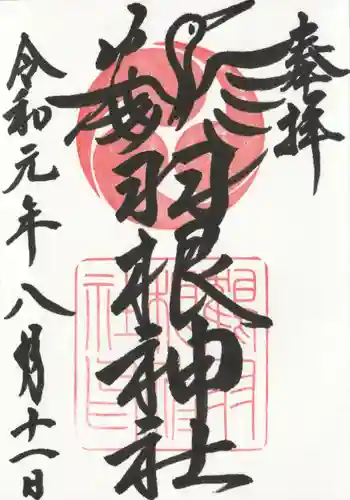 奉拝
鶴羽根神社
令和元年八月十一日
鶴羽
根神
社印